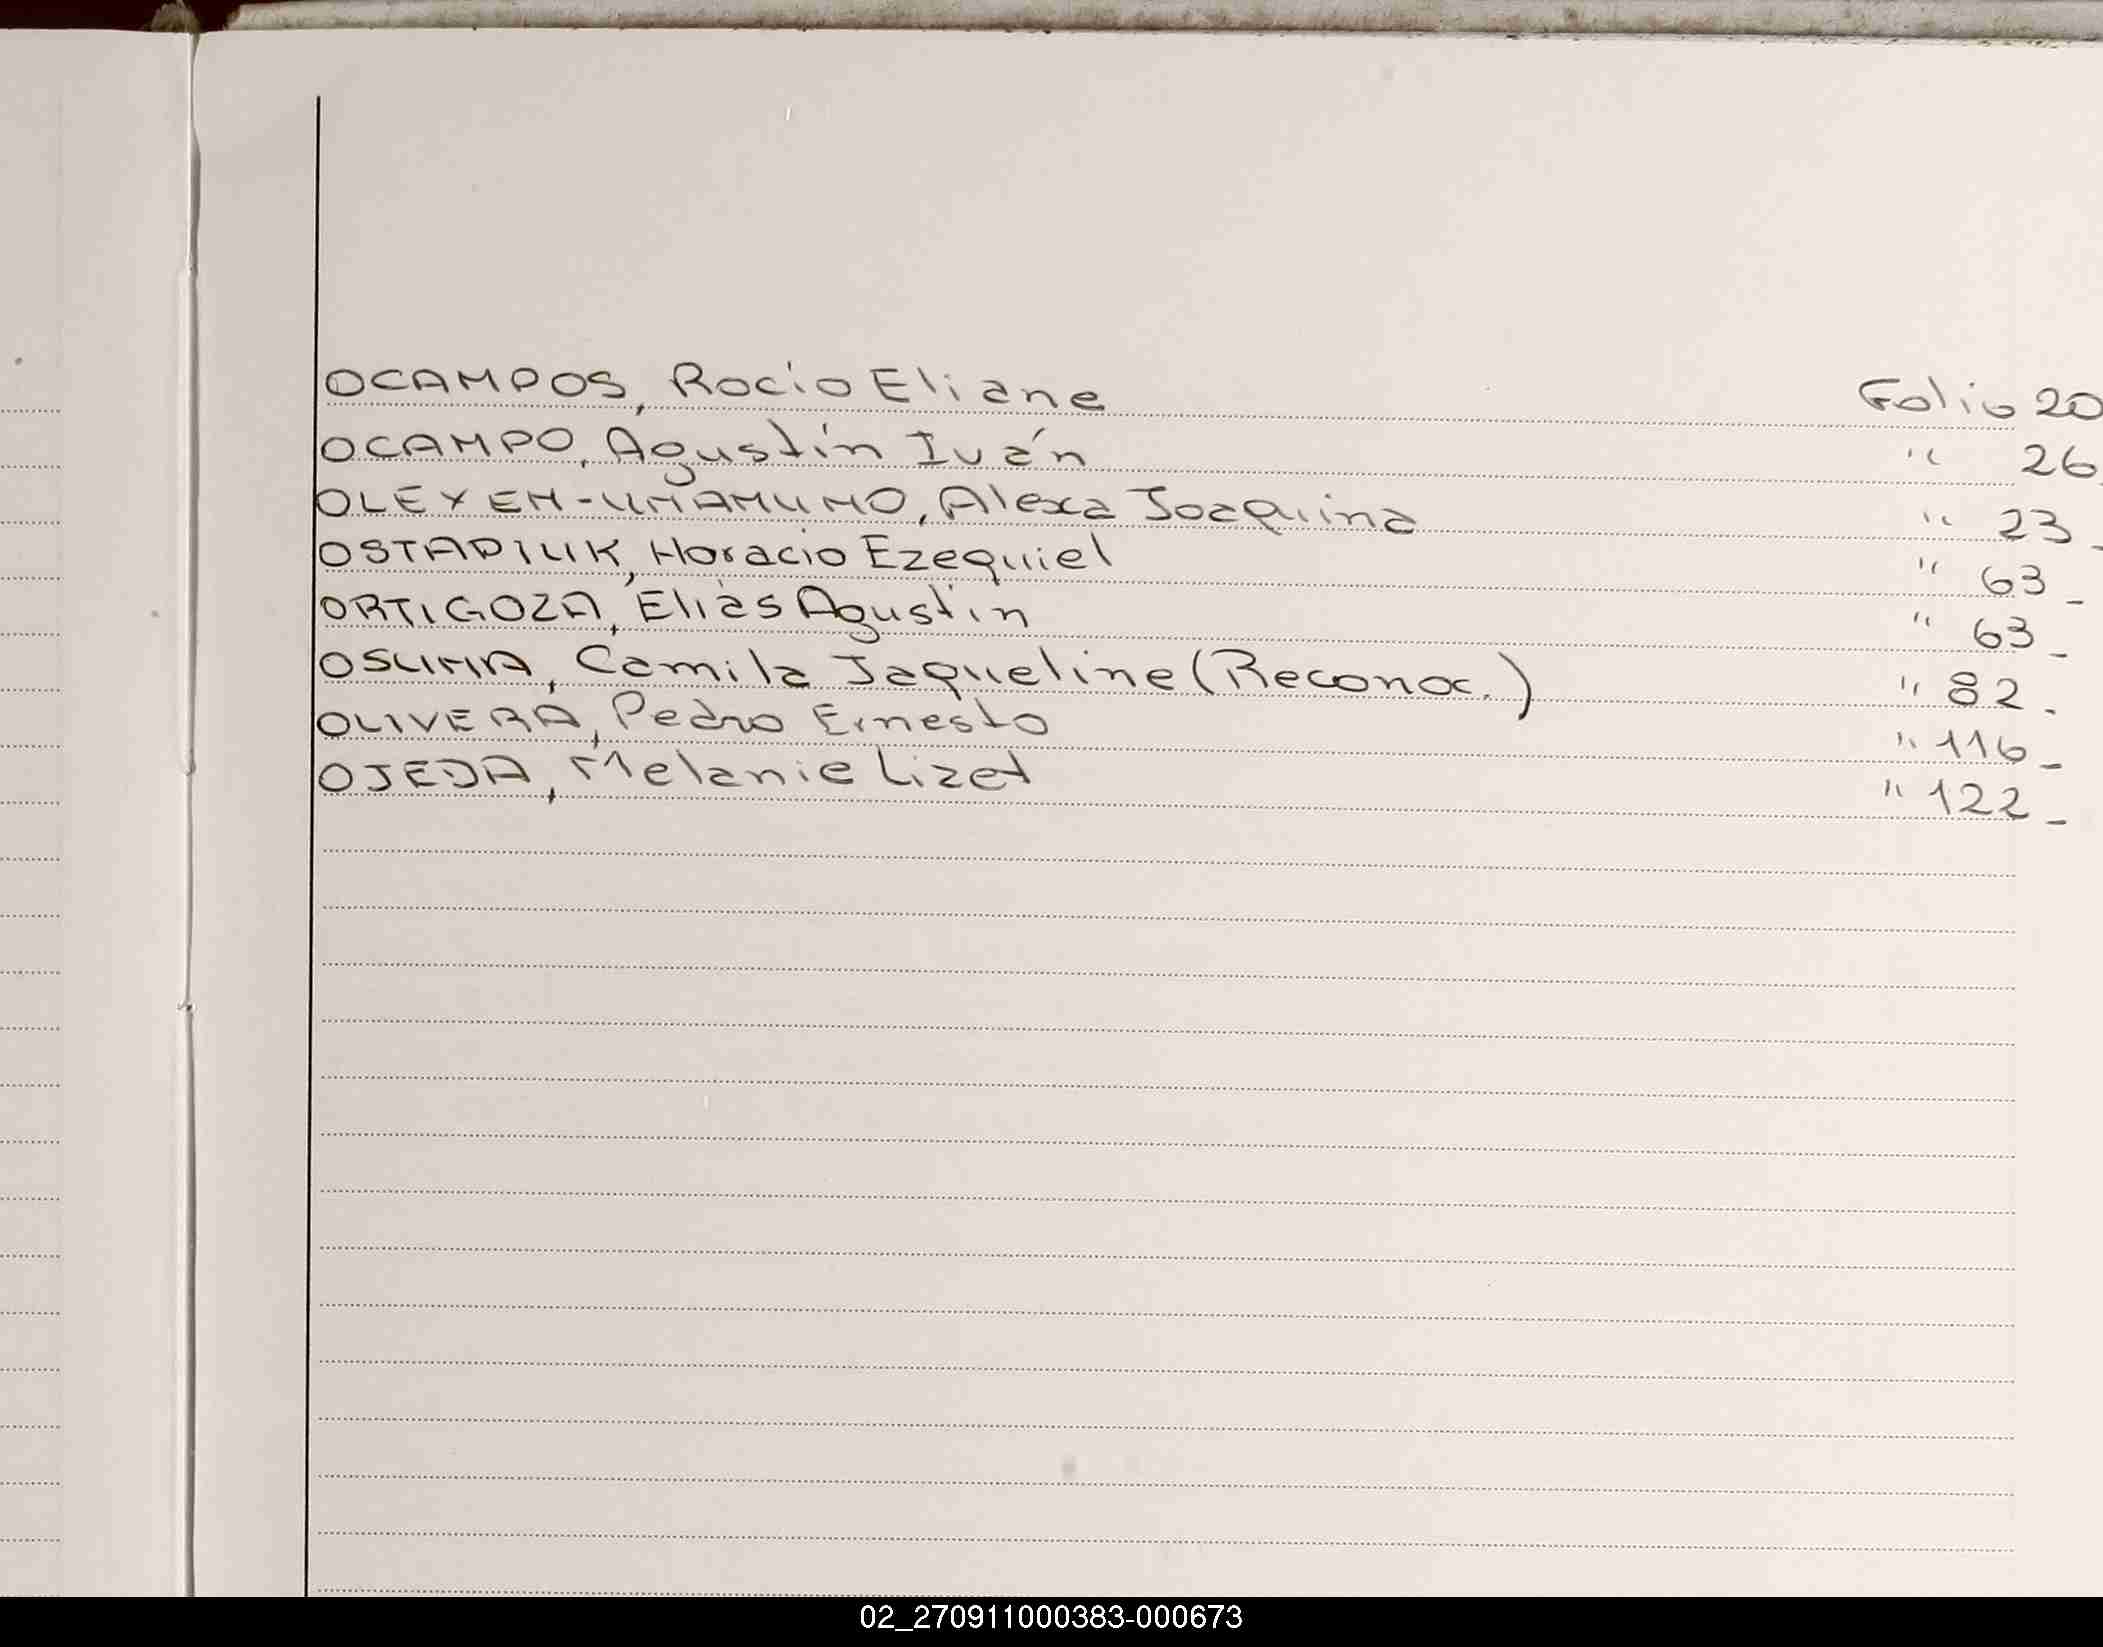 OCAMPOS, Rocío Eliane Folio 20
OCAMPO, Agustín Iván " 26
OLEXEN-UNAMUNO, Alexa Joaquina " 23_
OSTAPIUK, Horacio Ezequiel " 63_
ORTIGOZA, Elías Agustín " 63_
OSUNA, Camila Jaqueline (Reconoc.) " 82.
OLIVERA, Pedro Ernesto " 116_
OJEDA, Melanie Lizet " 122_
02_270911000383-000673